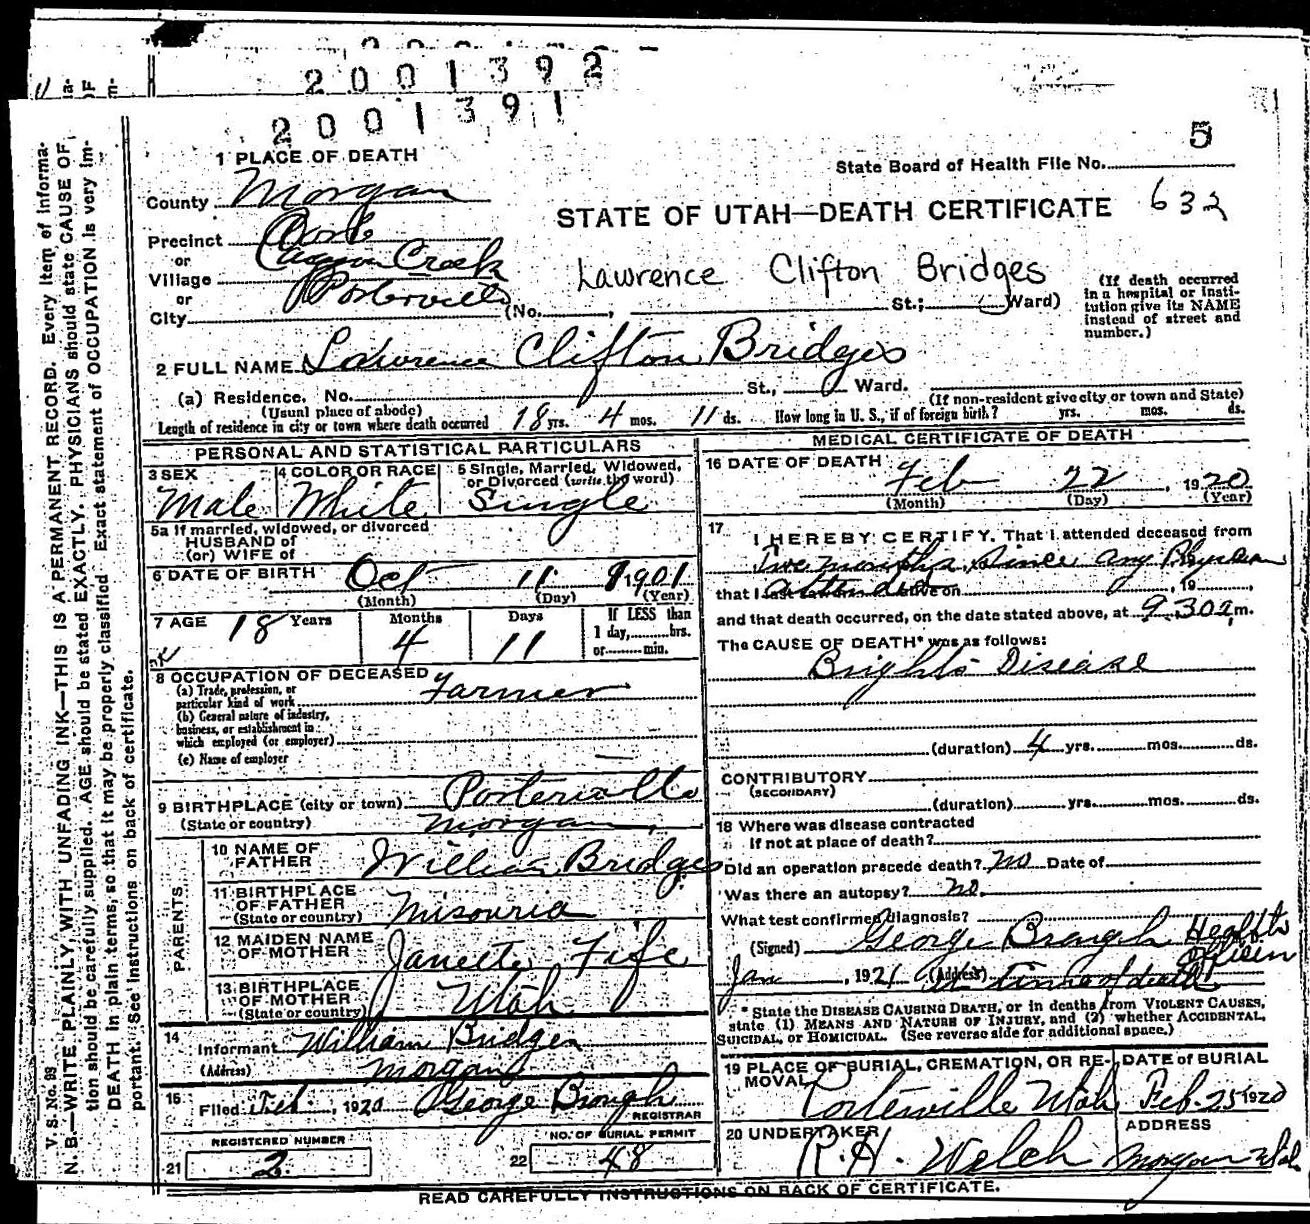 2001392
2001391
5
1 PLACE OF DEATH
State Board of Health File No.
County Morgan
STATE OF UTAH—DEATH CERTIFICATE 632
Precinct
or
Canyon Creek
Village
Lawrence Clifton Bridges
or
Porterville
City (No. , St.; Ward)
(If death occurred in a hospital or institution give its NAME instead of street and number.)
2 FULL NAME Lawrence Clifton Bridges
(a) Residence. No. St., Ward.
(Usual place of abode)
(If non-resident give city or town and State)
Length of residence in city or town where death occurred 18 yrs. 4 mos. 11 ds. How long in U. S., if of foreign birth? yrs. mos. ds.
PERSONAL AND STATISTICAL PARTICULARS
3 SEX
Male
4 COLOR OR RACE
White
5 Single, Married, Widowed,
or Divorced (write the word)
Single
5a If married, widowed, or divorced
HUSBAND of
(or) WIFE of
6 DATE OF BIRTH Oct 11 1901
(Month) (Day) (Year)
7 AGE 18 Years
Months
4
Days
11
If LESS than
1 day, hrs.
or min.
8 OCCUPATION OF DECEASED
(a) Trade, profession, or
particular kind of work Farmer
(b) General nature of industry,
business, or establishment in
which employed (or employer)
(c) Name of employer
9 BIRTHPLACE (city or town) Porterville
(State or country) Morgan
PARENTS
10 NAME OF
FATHER William Bridges
11 BIRTHPLACE
OF FATHER
(State or country) Misouria
12 MAIDEN NAME
OF MOTHER Janette Fife
13 BIRTHPLACE
OF MOTHER
(State or country) Utah
14
Informant William Bridges
(Address) Morgan
15
Filed Feb , 1920 George Brough
REGISTRAR
REGISTERED NUMBER
21 2
NO. OF BURIAL PERMIT
22 48
MEDICAL CERTIFICATE OF DEATH
16 DATE OF DEATH
Feb 22 , 1920
(Month) (Day) (Year)
17
I HEREBY CERTIFY, That I attended deceased from
Two months since any Physician
attended
that I last saw alive on , 19
and that death occurred, on the date stated above, at 9.30 a m.
The CAUSE OF DEATH* was as follows:
Brights Disease
(duration) 4 yrs. mos. ds.
CONTRIBUTORY
(SECONDARY)
(duration) yrs. mos. ds.
18 Where was disease contracted
If not at place of death?
Did an operation precede death? No Date of
Was there an autopsy? no.
What test confirmed diagnosis?
(Signed) George Brough Health
Officer
Jan , 1921 (Address) At time of death
* State the DISEASE CAUSING DEATH, or in deaths from VIOLENT CAUSES,
state (1) MEANS AND NATURE OF INJURY, and (2) whether ACCIDENTAL,
SUICIDAL, or HOMICIDAL. (See reverse side for additional space.)
19 PLACE OF BURIAL, CREMATION, OR RE-
MOVAL
Porterville Utah
DATE of BURIAL
Feb. 25 1920
20 UNDERTAKER
R. H. Welch
ADDRESS
Morgan Utah
READ CAREFULLY INSTRUCTIONS ON BACK OF CERTIFICATE.
V. S. No. 83
N. B.—WRITE PLAINLY, WITH UNFADING INK—THIS IS A PERMANENT RECORD. Every item of informa-
tion should be carefully supplied. AGE should be stated EXACTLY. PHYSICIANS should state CAUSE OF
DEATH in plain terms, so that it may be properly classified. Exact statement of OCCUPATION is very im-
portant. See instructions on back of certificate.